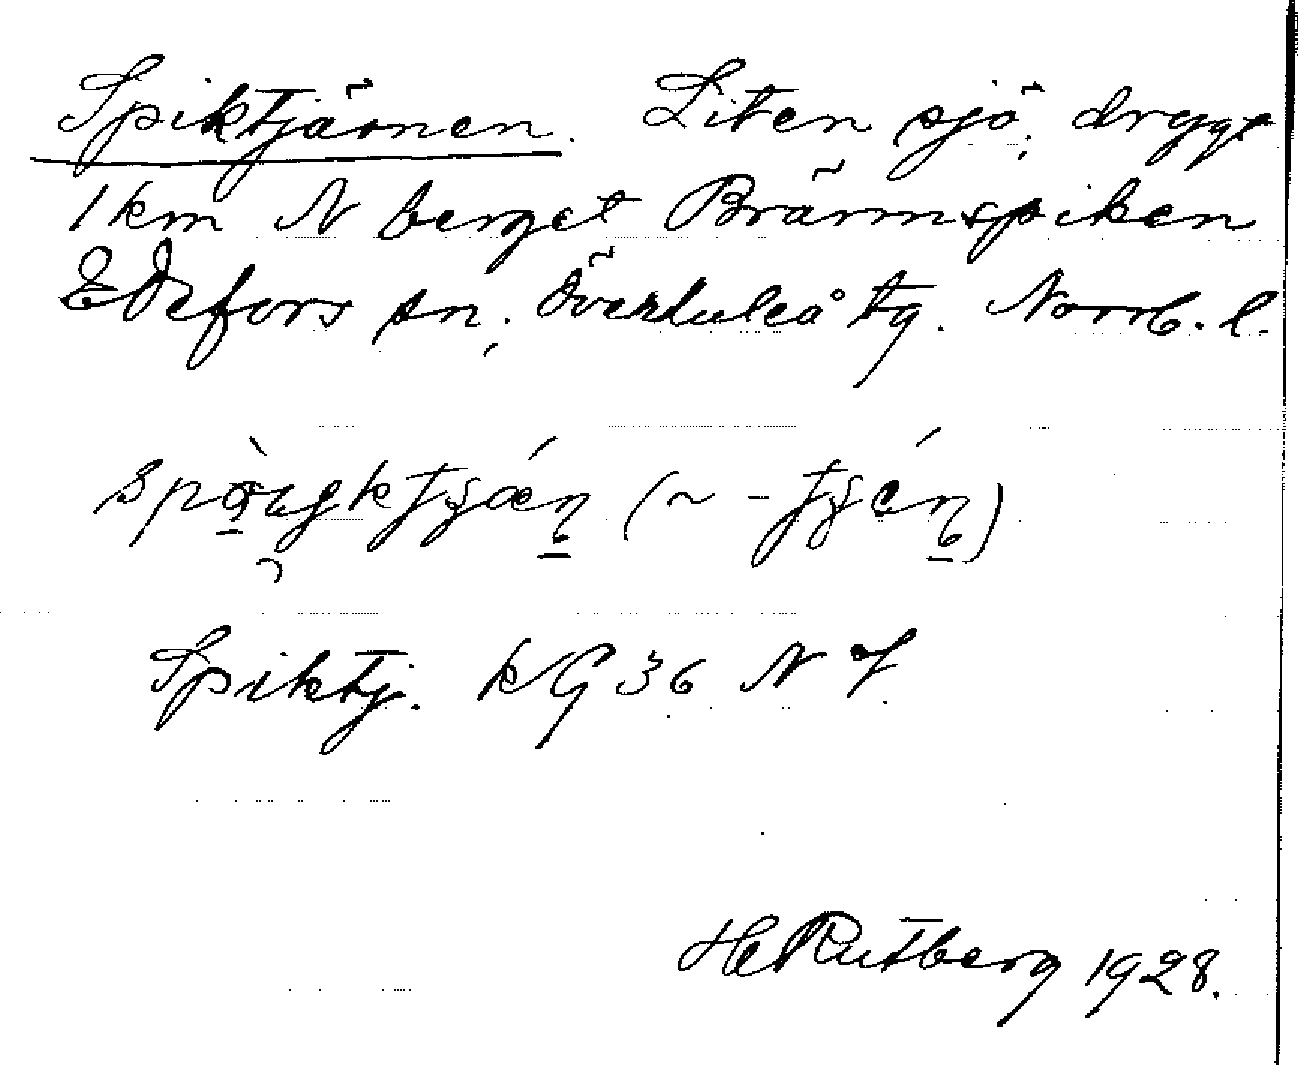 Spiktjärnen. Liten sjö, drygt
1 km N berget Brännspiken
Edefors sn, Överluleå tg. Norrb. l.
Spiktj. kG 36 N V
H Rutberg 1928.